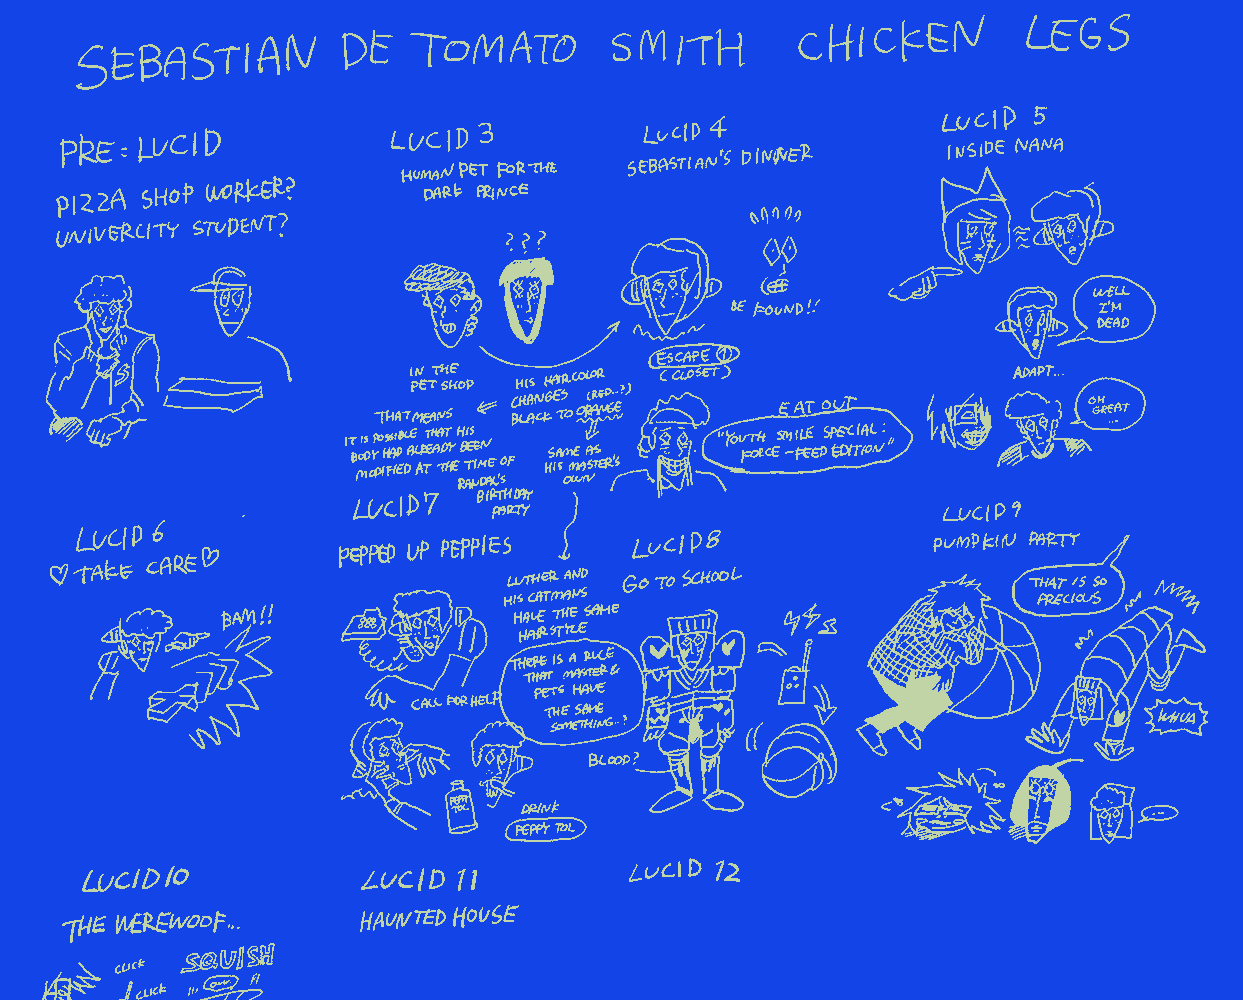 SEBASTIAN DE TOMATO SMITH CHICKEN LEGS
PRE=LUCID
PIZZA SHOP WORKER?
UNIVERCITY STUDENT?
S
LUCID 3
HUMAN PET FOR THE
DARK PRINCE
???
IN THE
PET SHOP
HIS HAIRCOLOR
CHANGES (RED..?)
BLACK TO ORANGE
THAT MEANS
IT IS POSSIBLE THAT HIS
BODY HAD ALREADY BEEN
MODIFIED AT THE TIME OF
RANDAL'S
BIRTHDAY
PARTY
SAME AS
HIS MASTER'S
OWN
LUCID 4
SEBASTIAN'S DINNER
BE FOUND!!
ESCAPE ①
(CLOSET)
EAT OUT
"YOUTH SMILE SPECIAL:
FORCE-FEED EDITION"
LUCID 5
INSIDE NANA
WELL
I'M
DEAD
ADAPT...
OH
GREAT
...
LUCID 6
♡TAKE CARE♡
BAM!!
LUCID 7
PEPPED UP PEPPIES
CALL FOR HELP
LUTHER AND
HIS CATMANS
HAVE THE SAME
HAIRSTYLE
THERE IS A RULE
THAT MASTER &
PETS HAVE
THE SAME
SOMETHING..?
PEPPY
TOL
DRINK
PEPPY TOL
LUCID 8
GO TO SCHOOL
BLOOD?
LUCID 9
PUMPKIN PARTY
THAT IS SO
PRECIOUS
WHUA
...
LUCID 10
THE WEREWOOF...
CLICK
SQUISH
CLICK
LUCID 11
HAUNTED HOUSE
LUCID 12